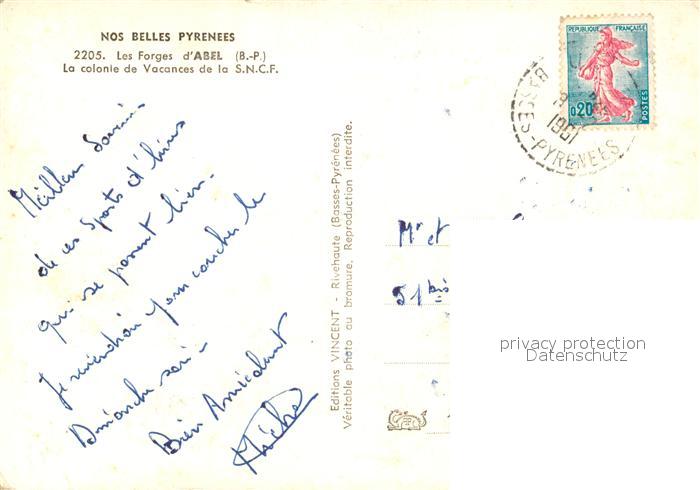 NOS BELLES PYRENEES
2205. Les Forges d'ABEL (B.-P.)
La colonie de Vacances de la S.N.C.F.
Meilleur Souvenir
de ces Sports d'hiver
qui se passent bien.
Je viendrai pour coucher le
Dimanche soir -
Bien Amicalement
Editions VINCENT - Rivehaute (Basses-Pyrénées)
Véritable photo au bromure. Reproduction interdite.
REPUBLIQUE FRANÇAISE
0,20
POSTES
1961
BASSES-PYRENEES
Mr et
51 bis
privacy protection
Datenschutz